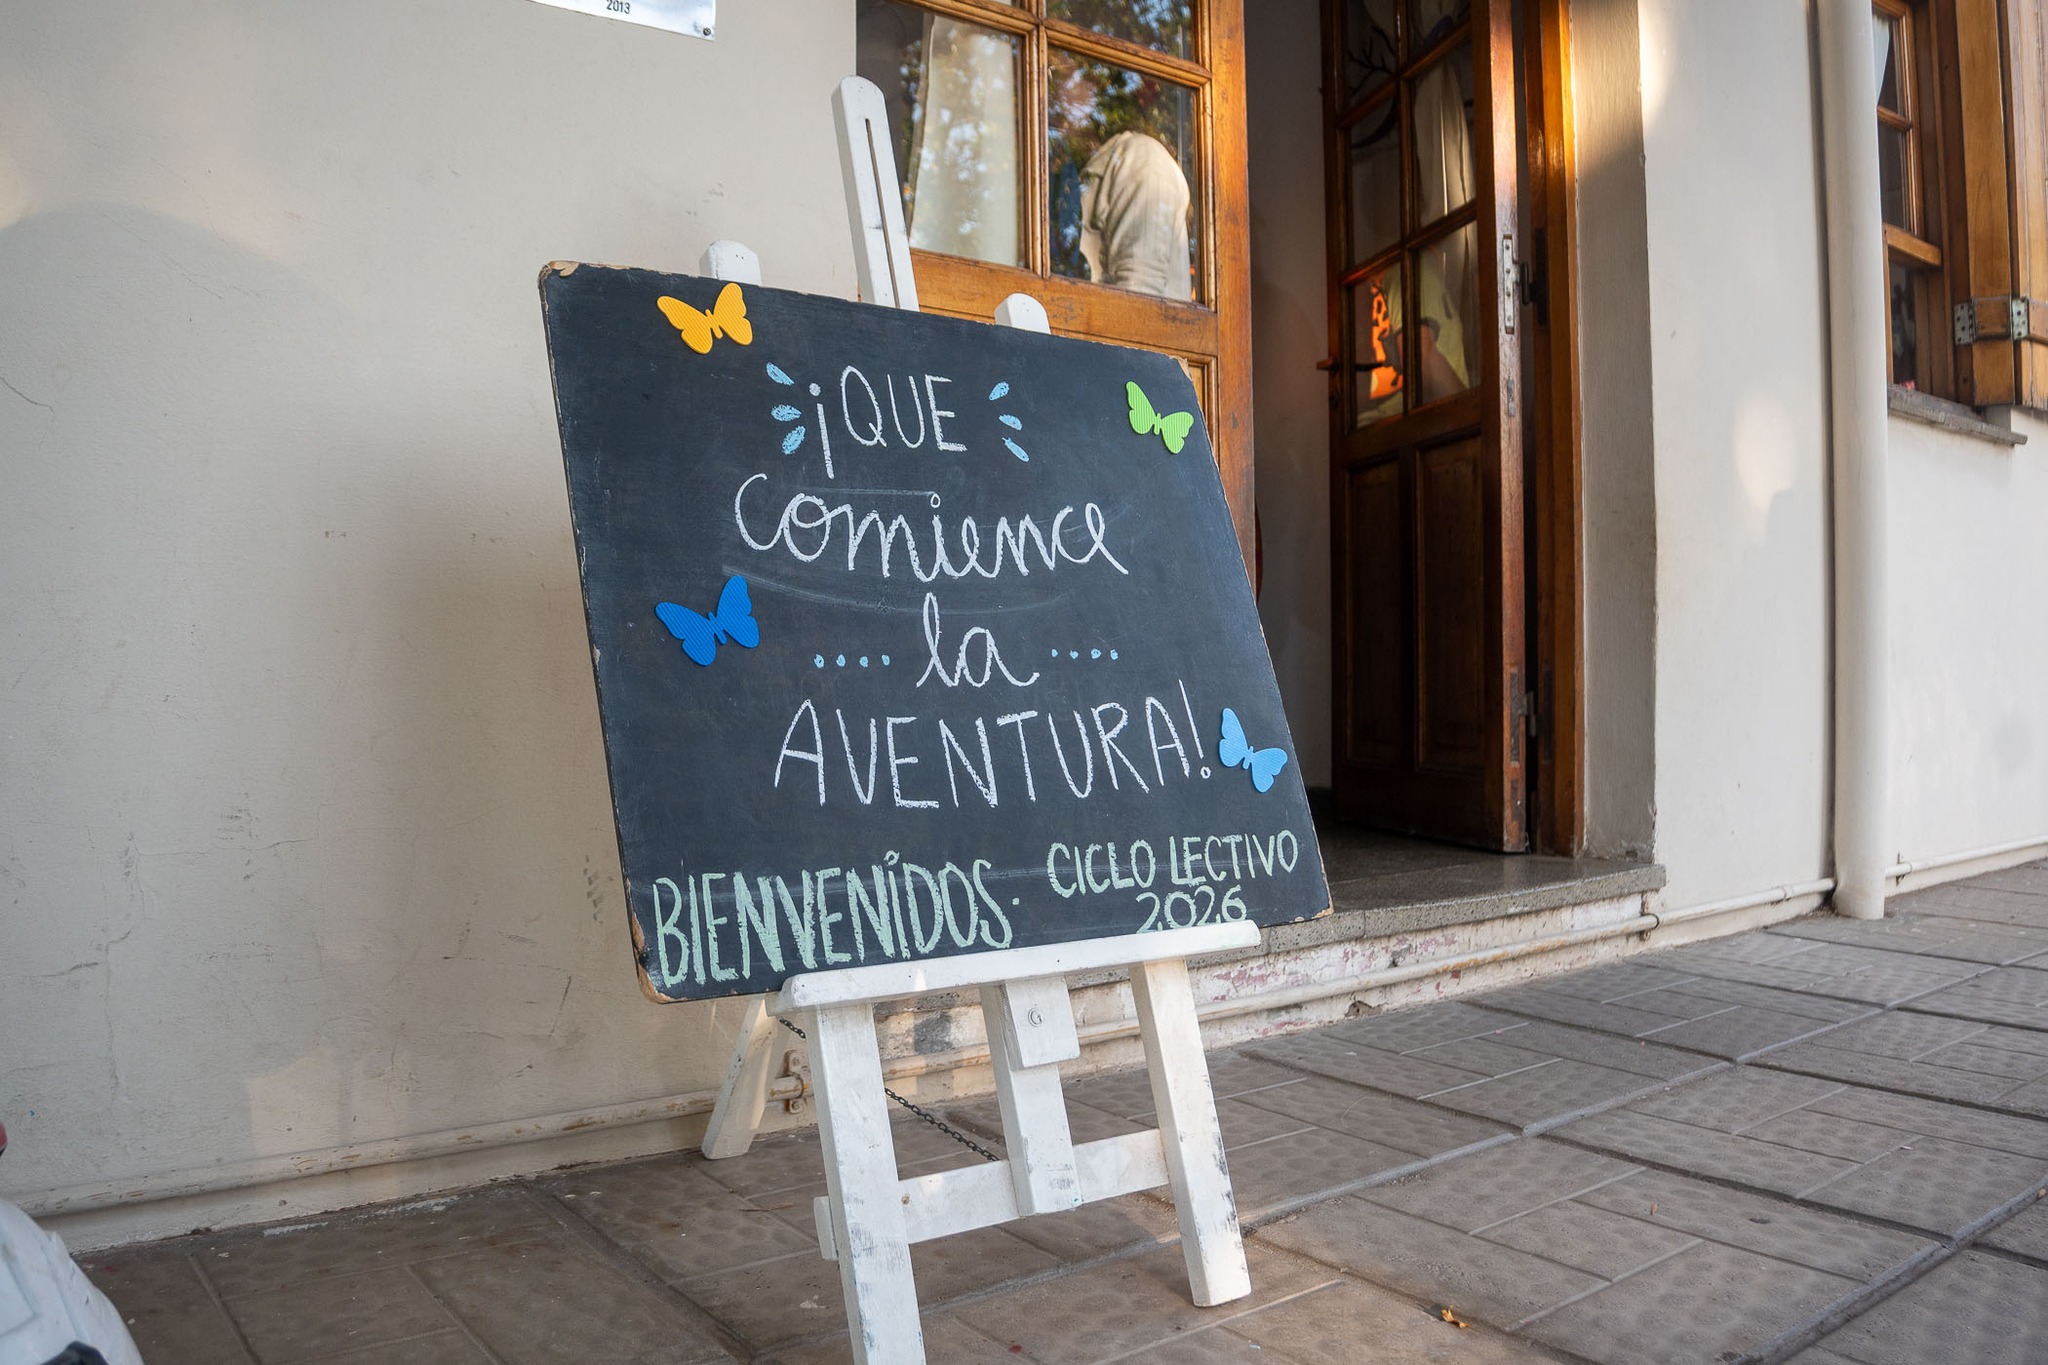 2013
¡QUE
comience
la
AVENTURA!
BIENVENIDOS· CICLO LECTIVO
2026
G